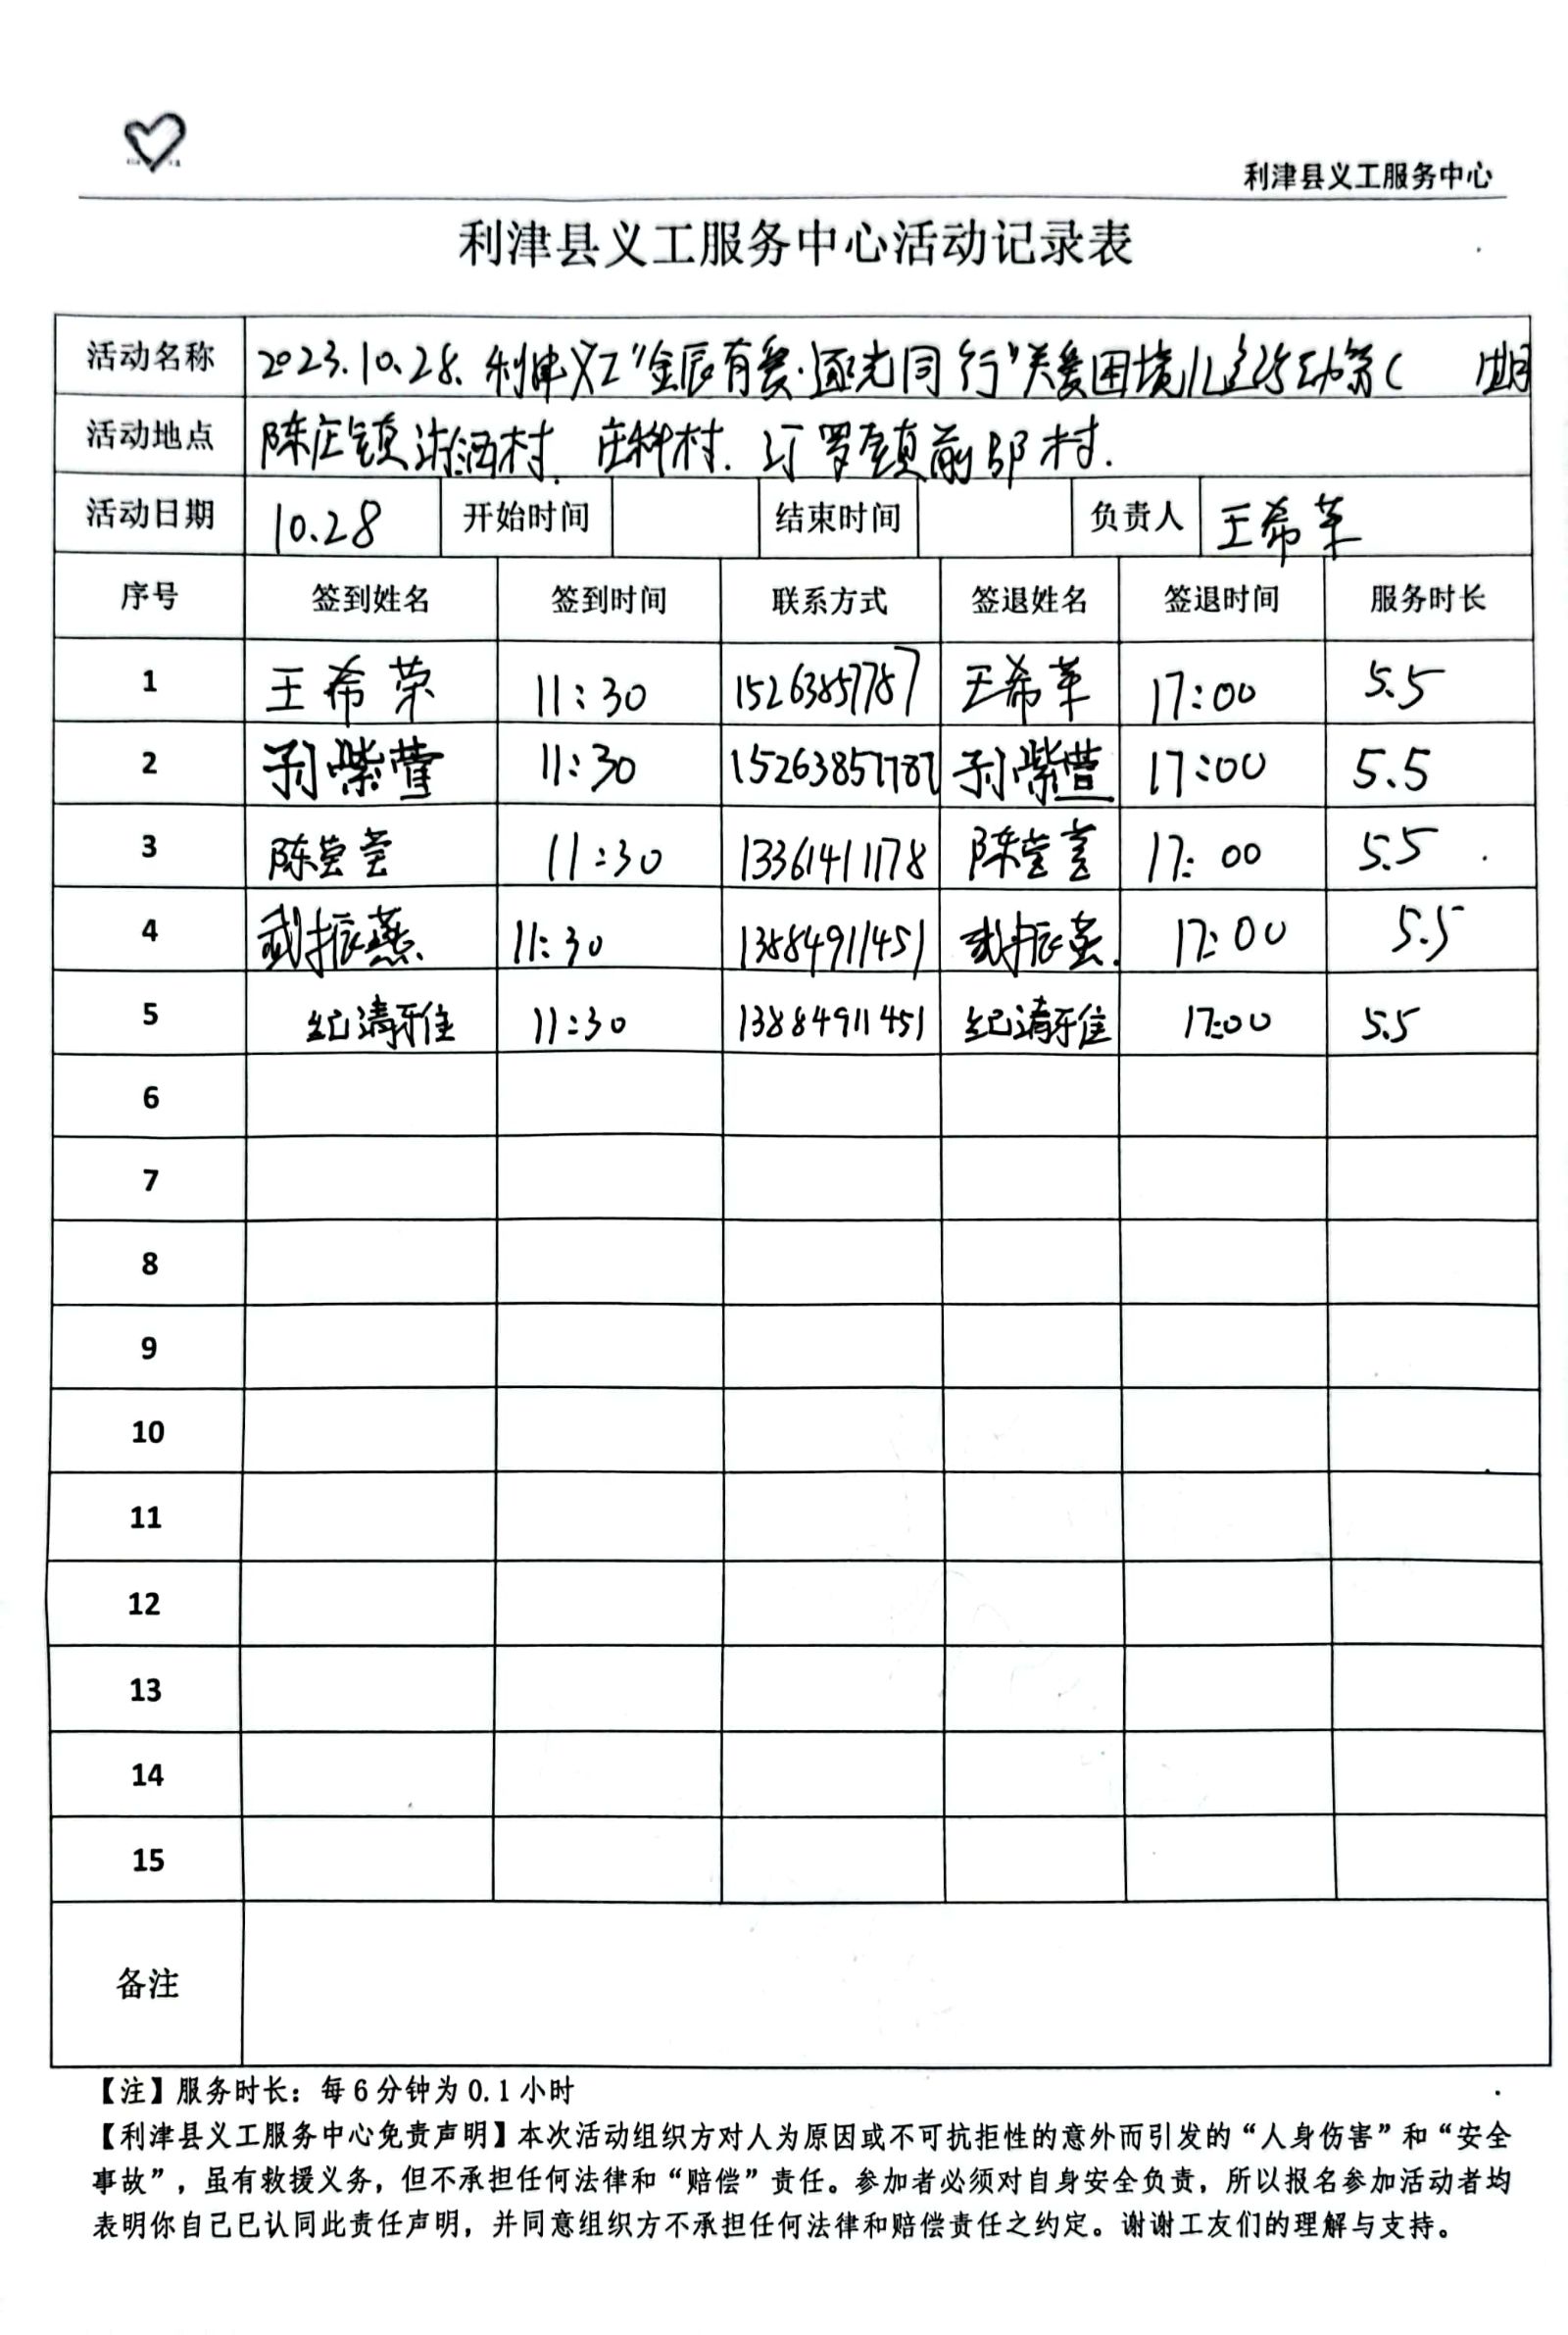 利津县义工服务中心
利津县义工服务中心活动记录表
活动名称 2023.10.28. 利津义工"金辰有爱·逐光同行"关爱困境儿童活动第( )期
活动地点 陈庄镇 村. 庄科村. 汀罗镇前邵村.
活动日期 10.28 开始时间 结束时间 负责人 王希荣
序号 签到姓名 签到时间 联系方式 签退姓名 签退时间 服务时长
1 王希荣 11:30 15263857787 王希荣 17:00 5.5
2 紫萱 11:30 15263857787 紫萱 17:00 5.5
3 陈莹莹 11:30 13361411178 陈莹莹 17:00 5.5
4 武振燕 11:30 13884911451 武振燕 17:00 5.5
5 纪清雅 11:30 13884911451 纪清雅 17:00 5.5
6
7
8
9
10
11
12
13
14
15
备注
【注】服务时长：每6分钟为0.1小时
【利津县义工服务中心免责声明】本次活动组织方对人为原因或不可抗拒性的意外而引发的“人身伤害”和“安全
事故”，虽有救援义务，但不承担任何法律和“赔偿”责任。参加者必须对自身安全负责，所以报名参加活动者均
表明你自己已认同此责任声明，并同意组织方不承担任何法律和赔偿责任之约定。谢谢工友们的理解与支持。